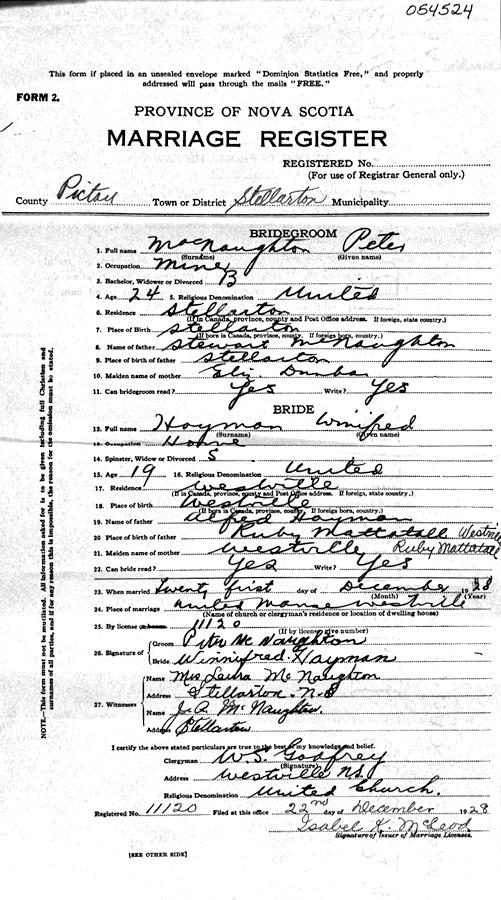 054524
This form if placed in an unsealed envelope marked "Dominion Statistics Free," and properly
addressed will pass through the mails "FREE."
FORM 2.
PROVINCE OF NOVA SCOTIA
MARRIAGE REGISTER
REGISTERED No.
(For use of Registrar General only.)
County Pictou Town or District Stellarton Municipality
BRIDEGROOM
1. Full name MacNaughton Peter
(Surname) (Given name)
2. Occupation Miner
3. Bachelor, Widower or Divorced B
4. Age 24 5. Religious Denomination United
6. Residence Stellarton
(If in Canada, province, county and Post Office address. If foreign, state country.)
7. Place of Birth Stellarton
(If born in Canada, province. If foreign born, country.)
8. Name of father Stewart McNaughton
9. Place of birth of father Stellarton
10. Maiden name of mother Eliz Dunbar
11. Can bridegroom read? Yes Write? Yes
BRIDE
12. Full name Hayman Winifred
(Surname) (Given name)
13. Occupation Home
14. Spinster, Widow or Divorced S
15. Age 19 16. Religious Denomination United
17. Residence Westville
(If in Canada, province, county and Post Office address. If foreign, state country.)
18. Place of birth Westville
(If born in Canada, province. If foreign born, country.)
19. Name of father Alfred Hayman
20. Place of birth of father Ruby Mattatall Westville
21. Maiden name of mother Westville Ruby Mattatall
22. Can bride read? Yes Write? Yes
23. When married Twenty first day of December 1928
(Month) (Year)
24. Place of marriage United Manse Westville
(Name of church or clergyman's residence or location of dwelling house)
25. By license 11120
(If by license give number)
26. Signature of Groom Peter McNaughton
Bride Winnifred Hayman
27. Witnesses Name Mrs Laura McNaughton
Address Stellarton N.S
Name J.A. McNaughton.
Address Stellarton
I certify the above stated particulars are true to the best of my knowledge and belief.
Clergyman W.S. Godfrey
(Signature)
Address Westville N.S.
Religious Denomination United Church.
Registered No. 11120 Filed at this office 22nd day of December 1928
Isabel K. McLeod
Signature of Issuer of Marriage Licenses.
[SEE OTHER SIDE]
NOTE.—This form must not be mutilated. All informations asked for is to be given including full Christian and
surnames of all parties, and if for any reason this is impossible, the reason for the omission must be stated.